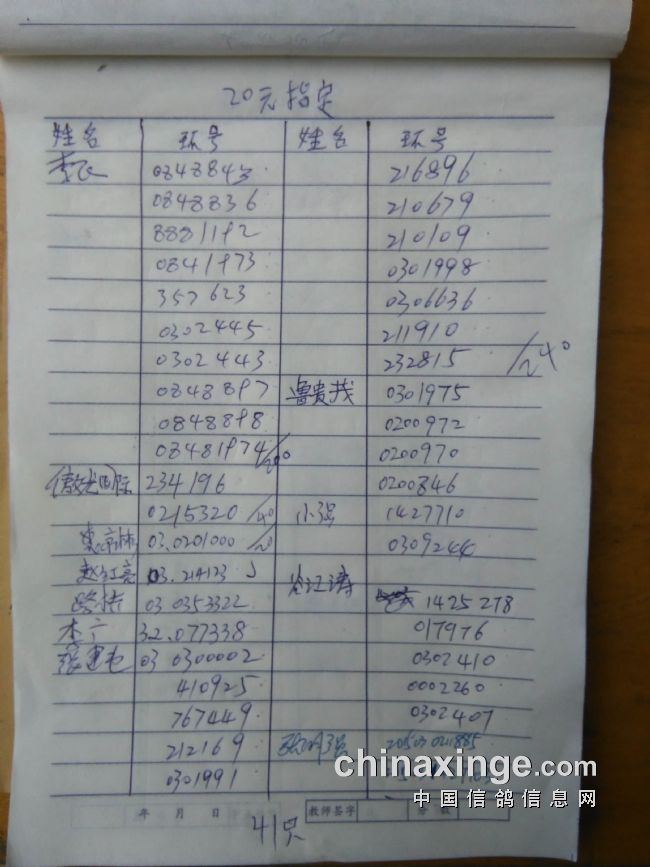 20元指定
姓名 环号 姓名 环号
李 0848843 216896
0848836 210679
8881192 210109
0841973 0301998
357623 0306636
0302445 211910
0302443 232815 /240
0848897 鲁贵 0301975
0848898 0200972
08481974 /200 0200970
234196 0200846
0215320 /40 小强 1427710
03.0201000 /20 0309244
赵红亮 03.214123
路 03 0353322 1425278
李广 32.077338 017976
张建 03 0300002 0302410
410925 0002260
767449 0302407
212169 0211885
0301991
chinaxinge.com
中国信鸽信息网
年 月 日 教师签字
41只